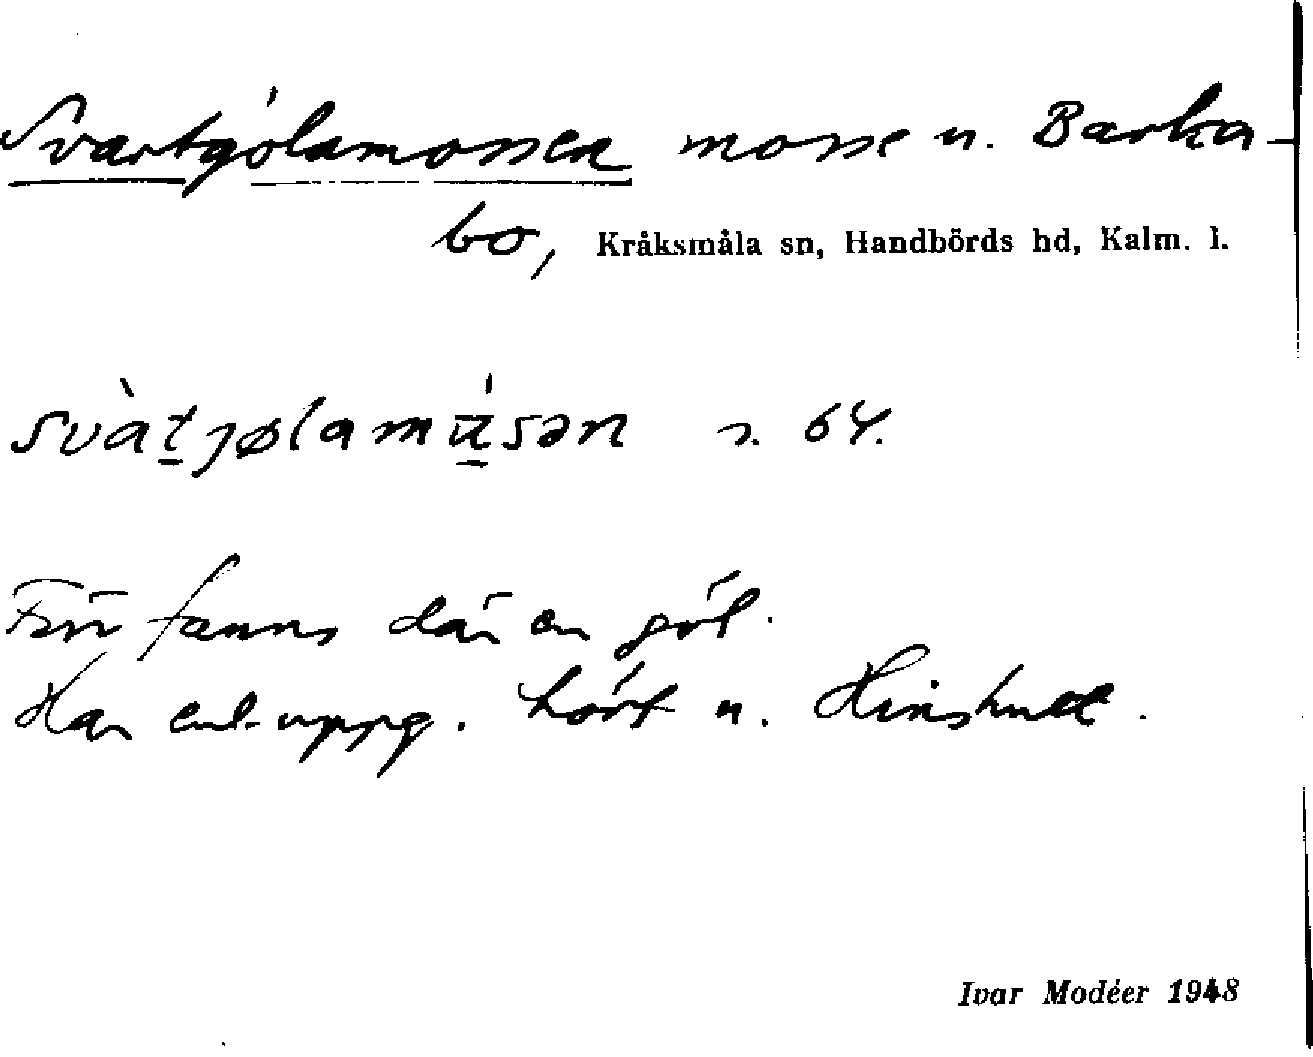 Svartgölamossen mosse u. Barka-
bo, Kråksmåla sn, Handbörds hd, Kalm. l.
svàt̲jølamu̲̇sən s. 64.
Förr fanns där en göl.
Har enl. uppg. hört u. Hinshult.
Ivar Modéer 1948